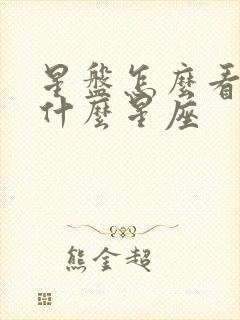 星盤怎麼看
什麼星座
熊金超